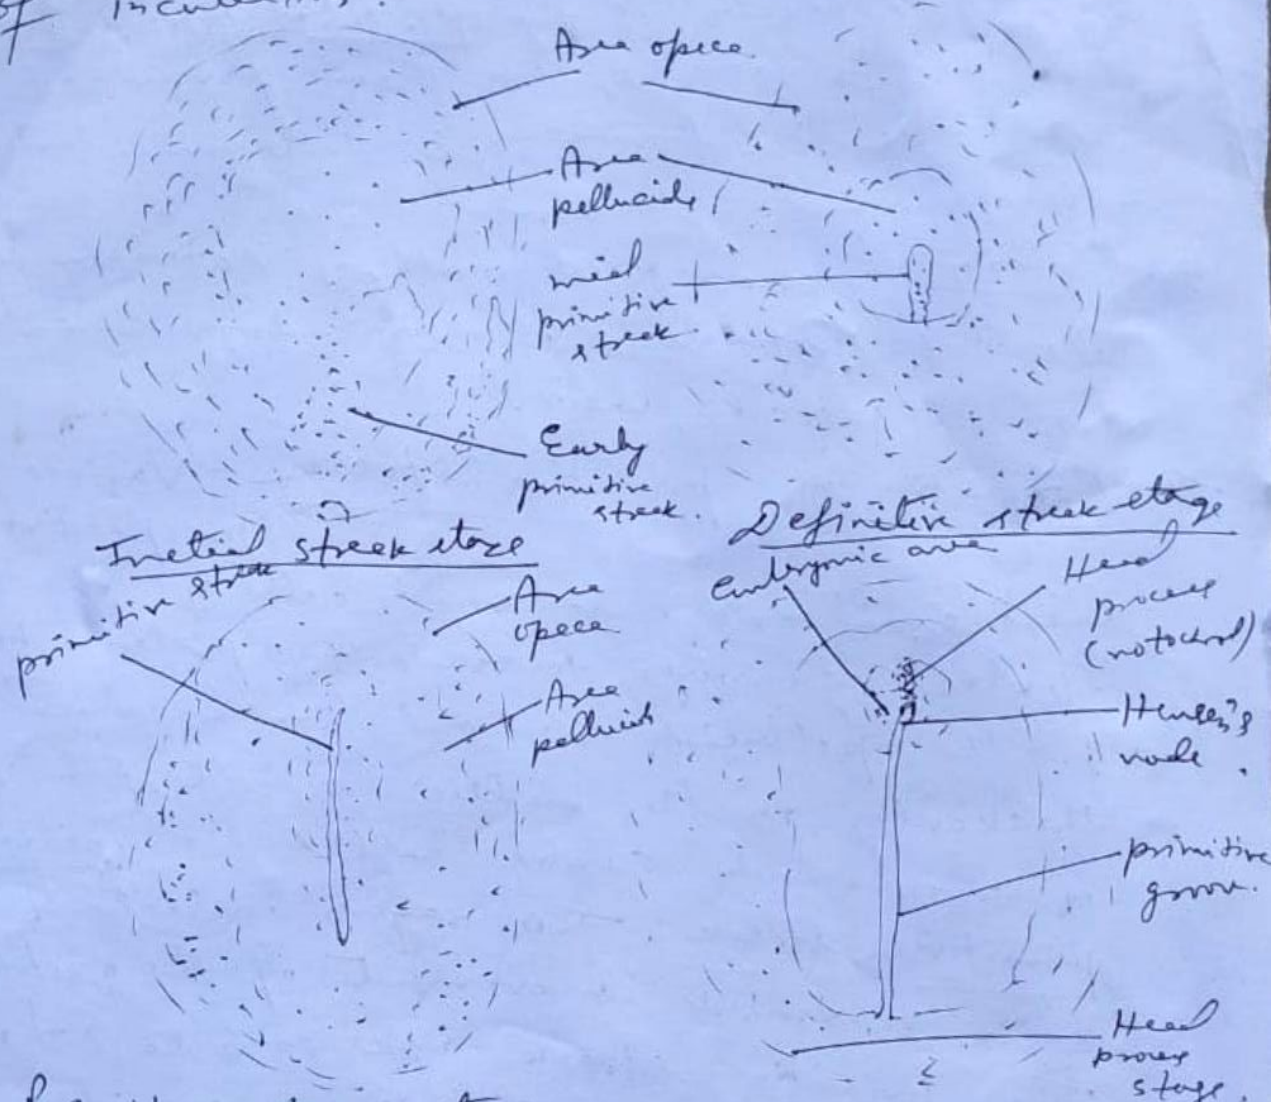 of Incubation.
Area opeca
Area
pellucida
mid
primitive
streak
Early
primitive
streak.
Inetial streak stage
Definitive streak stage
primitive streak
Area
opeca
Area
pellucida
Embryonic area
Head
process
(notochord)
Hensen's
node.
primitive
groove.
Head
process
stage.